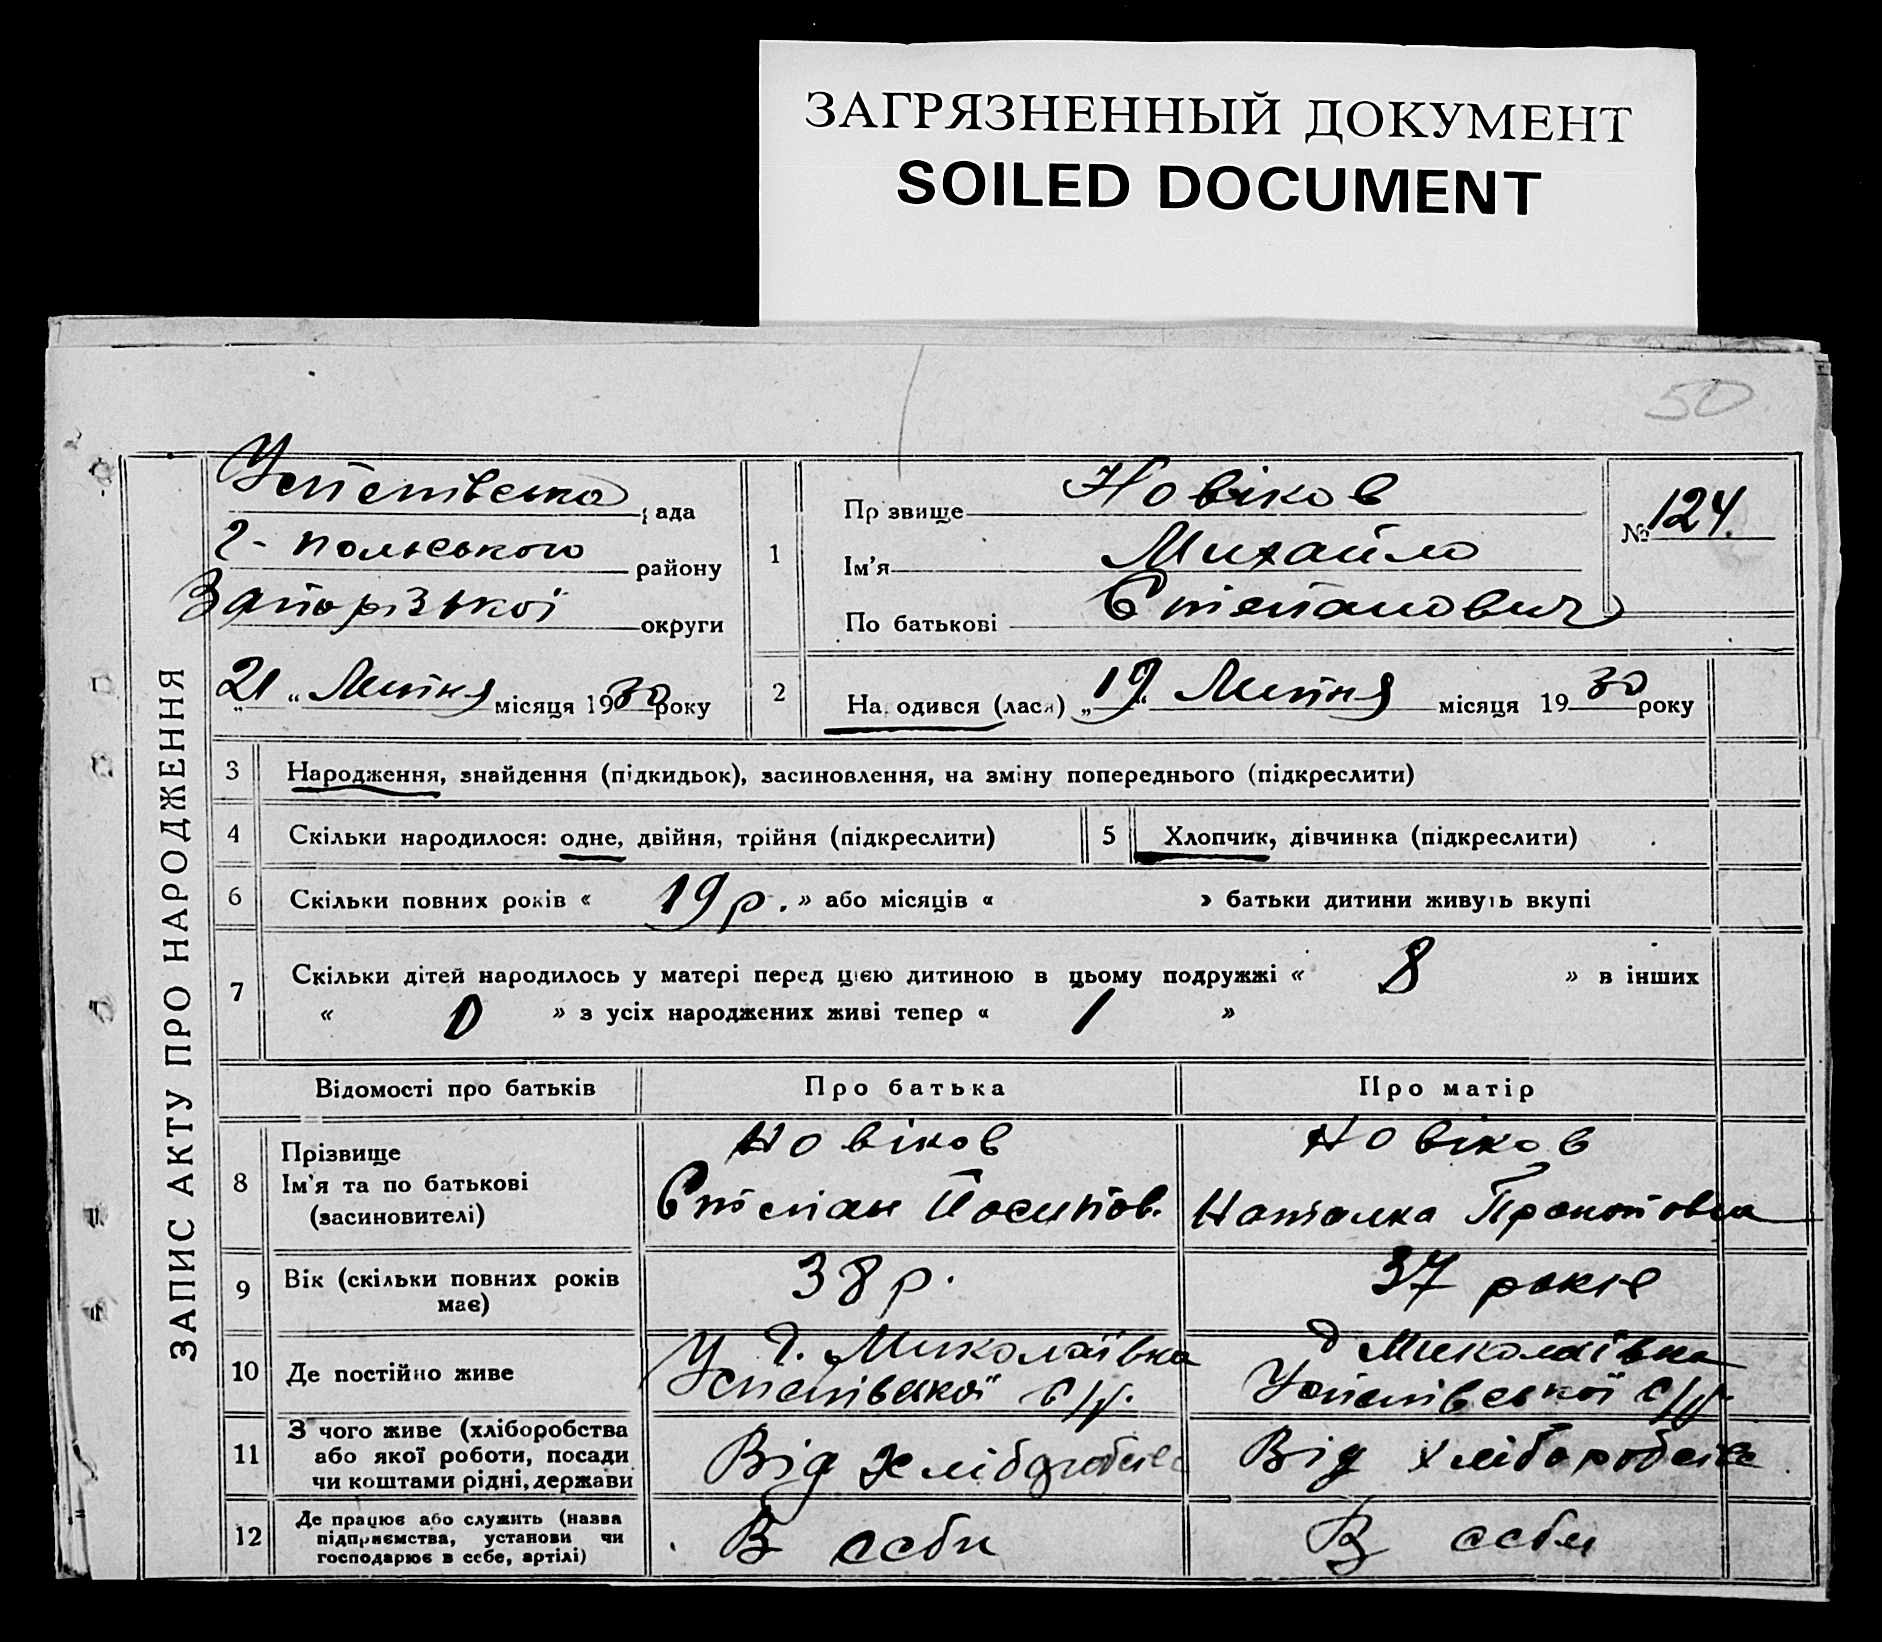 ЗАГРЯЗНЕННЫЙ ДОКУМЕНТ
SOILED DOCUMENT
50
ЗАПИС АКТУ ПРО НАРОДЖЕННЯ
Успенівська рада
г-польського району
Запорізької округи
21 “ Липня місяця 1930 року
1
Прізвище Новіков
Ім'я Михайло
По батькові Степанович
№ 124.
2 Народився (лася) „19“ Липня місяця 1930 року
3 Народження, знайдення (підкидьок), засиновлення, на зміну попереднього (підкреслити)
4 Скільки народилося: одне, двійня, трійня (підкреслити)
5 Хлопчик, дівчинка (підкреслити)
6 Скільки повних років « 19 р. » або місяців « » батьки дитини живуть вкупі
7 Скільки дітей народилось у матері перед цією дитиною в цьому подружжі « 8 » в інших
« 0 » з усіх народжених живі тепер « 1 »
Відомості про батьків Про батька Про матір
8 Прізвище
Ім'я та по батькові
(засиновителі)
Новіков
Степан Йосипов.
Новіков
Наталка Прокоповна
9 Вік (скільки повних років
має)
38 р.
37 років
10 Де постійно живе
д. Миколаївка
Успенівської с/р.
д Миколаївка
Успенівської с/р.
11 З чого живе (хліборобства
або якої роботи, посади
чи коштами рідні, держави
Від хліборобства
Від хліборобства
12 Де працює або служить (назва
підприємства, установи чи
господарює в себе, артілі)
В себи
В себи